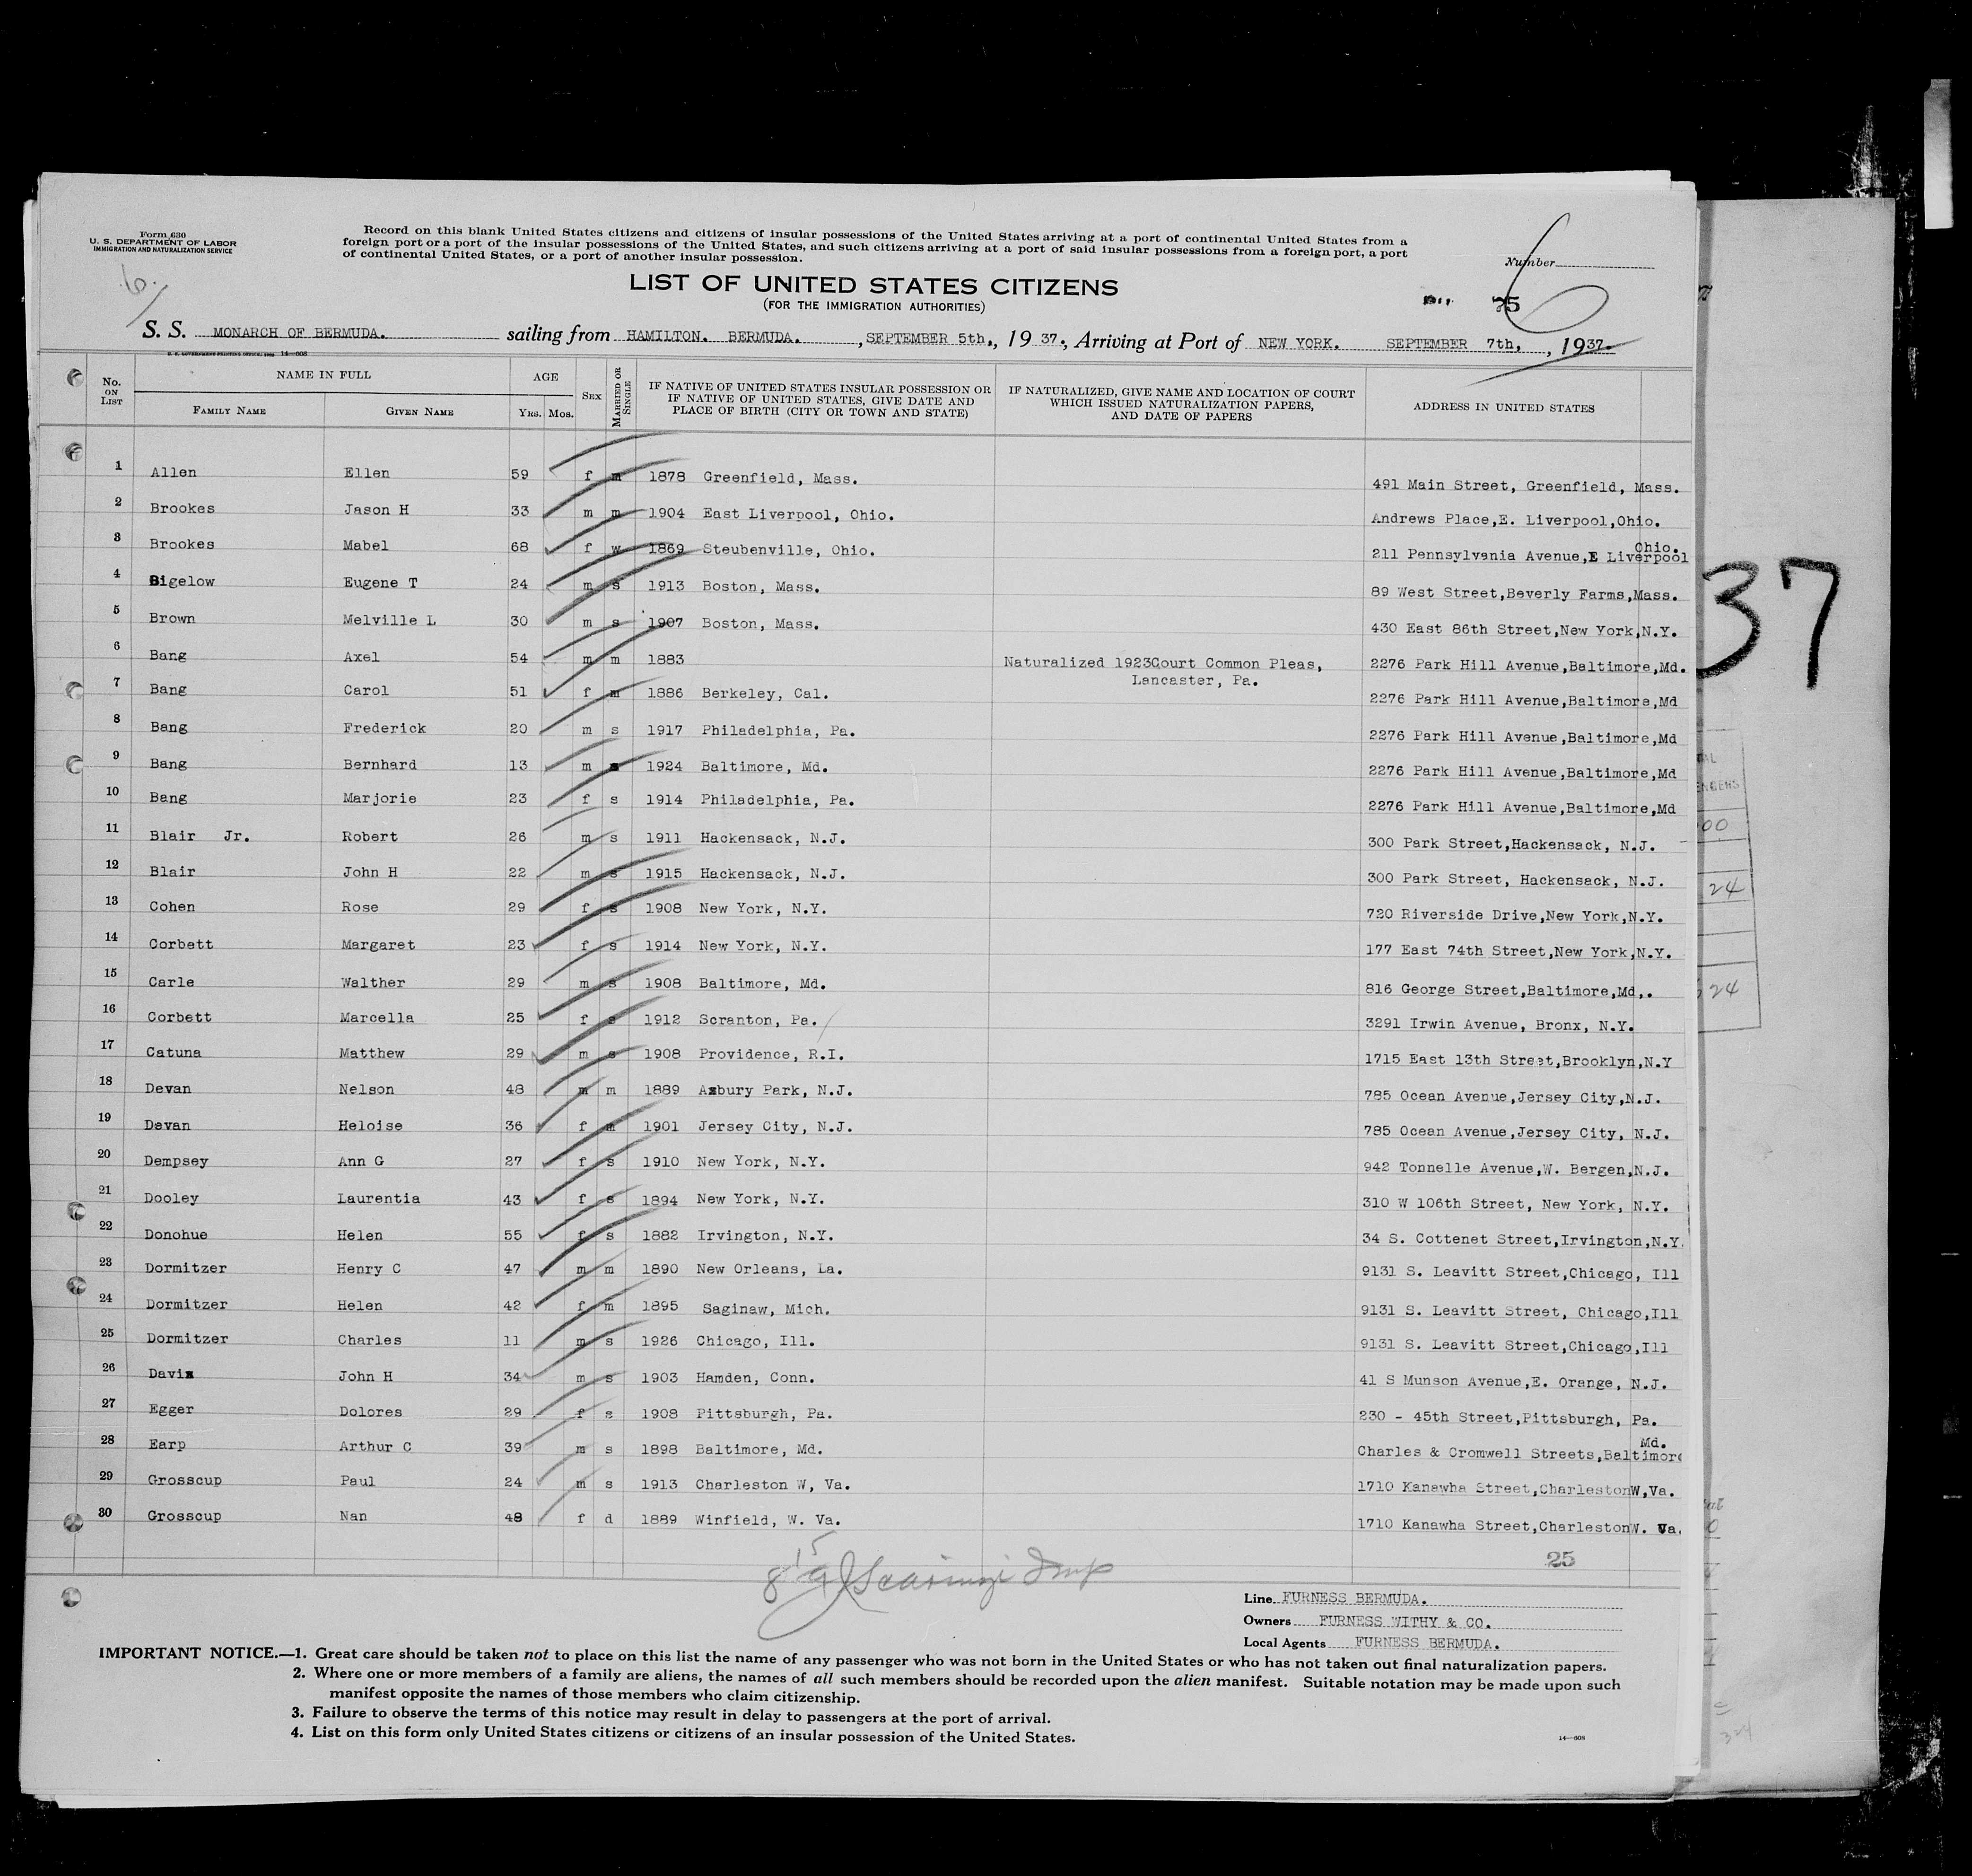 Form 630
U. S. DEPARTMENT OF LABOR
IMMIGRATION AND NATURALIZATION SERVICE
Record on this blank United States citizens and citizens of insular possessions of the United States arriving at a port of continental United States from a
foreign port or a port of the insular possessions of the United States, and such citizens arriving at a port of said insular possessions from a foreign port, a port
of continental United States, or a port of another insular possession.
Number
6
LIST OF UNITED STATES CITIZENS
(FOR THE IMMIGRATION AUTHORITIES)
75
S. S. MONARCH OF BERMUDA. sailing from HAMILTON. BERMUDA. , SEPTEMBER 5th., 19 37., Arriving at Port of NEW YORK. SEPTEMBER 7th, , 1937.
No. ON LIST NAME IN FULL AGE SEX MARRIED OR SINGLE IF NATIVE OF UNITED STATES INSULAR POSSESSION OR IF NATIVE OF UNITED STATES, GIVE DATE AND PLACE OF BIRTH (CITY OR TOWN AND STATE) IF NATURALIZED, GIVE NAME AND LOCATION OF COURT WHICH ISSUED NATURALIZATION PAPERS, AND DATE OF PAPERS ADDRESS IN UNITED STATES
FAMILY NAME GIVEN NAME YRS. MOS.
1 Allen Ellen 59 f m 1878 Greenfield, Mass. 491 Main Street, Greenfield, Mass.
2 Brookes Jason H 33 m m 1904 East Liverpool, Ohio. Andrews Place,E. Liverpool,Ohio.
3 Brookes Mabel 68 f w 1869 Steubenville, Ohio. 211 Pennsylvania Avenue,E Liverpool Ohio.
4 Bigelow Eugene T 24 m s 1913 Boston, Mass. 89 West Street,Beverly Farms,Mass.
5 Brown Melville L 30 m s 1907 Boston, Mass. 430 East 86th Street,New York,N.Y.
6 Bang Axel 54 m m 1883 Naturalized 1923Court Common Pleas, Lancaster, Pa. 2276 Park Hill Avenue,Baltimore,Md.
7 Bang Carol 51 f m 1886 Berkeley, Cal. 2276 Park Hill Avenue,Baltimore,Md
8 Bang Frederick 20 m s 1917 Philadelphia, Pa. 2276 Park Hill Avenue,Baltimore,Md
9 Bang Bernhard 13 m s 1924 Baltimore, Md. 2276 Park Hill Avenue,Baltimore,Md
10 Bang Marjorie 23 f s 1914 Philadelphia, Pa. 2276 Park Hill Avenue,Baltimore,Md
11 Blair Jr. Robert 26 m s 1911 Hackensack, N.J. 300 Park Street,Hackensack, N.J.
12 Blair John H 22 m s 1915 Hackensack, N.J. 300 Park Street, Hackensack, N.J.
13 Cohen Rose 29 f s 1908 New York, N.Y. 720 Riverside Drive,New York,N.Y.
14 Corbett Margaret 23 f s 1914 New York, N.Y. 177 East 74th Street,New York,N.Y.
15 Carle Walther 29 m s 1908 Baltimore, Md. 816 George Street,Baltimore,Md,.
16 Corbett Marcella 25 f s 1912 Scranton, Pa. 3291 Irwin Avenue, Bronx, N.Y.
17 Catuna Matthew 29 m s 1908 Providence, R.I. 1715 East 13th Street,Brooklyn,N.Y
18 Devan Nelson 48 m m 1889 Asbury Park, N.J. 785 Ocean Avenue,Jersey City,N.J.
19 Devan Heloise 36 f m 1901 Jersey City, N.J. 785 Ocean Avenue,Jersey City, N.J.
20 Dempsey Ann G 27 f s 1910 New York, N.Y. 942 Tonnelle Avenue,W. Bergen,N.J.
21 Dooley Laurentia 43 f s 1894 New York, N.Y. 310 W 106th Street, New York, N.Y.
22 Donohue Helen 55 f s 1882 Irvington, N.Y. 34 S. Cottenet Street,Irvington,N.Y.
23 Dormitzer Henry C 47 m m 1890 New Orleans, La. 9131 S. Leavitt Street,Chicago, Ill
24 Dormitzer Helen 42 f m 1895 Saginaw, Mich. 9131 S. Leavitt Street, Chicago,Ill
25 Dormitzer Charles 11 m s 1926 Chicago, Ill. 9131 S. Leavitt Street,Chicago,Ill
26 Davis John H 34 m s 1903 Hamden, Conn. 41 S Munson Avenue,E. Orange, N.J.
27 Egger Dolores 29 f s 1908 Pittsburgh, Pa. 230 - 45th Street,Pittsburgh, Pa.
28 Earp Arthur C 39 m s 1898 Baltimore, Md. Charles & Cromwell Streets,Baltimore Md.
29 Grosscup Paul 24 m s 1913 Charleston W, Va. 1710 Kanawha Street,CharlestonW,Va.
30 Grosscup Nan 48 f d 1889 Winfield, W. Va. 1710 Kanawha Street,CharlestonW. Va.
25
Line FURNESS BERMUDA.
Owners FURNESS WITHY & CO.
Local Agents FURNESS BERMUDA.
IMPORTANT NOTICE.—1. Great care should be taken not to place on this list the name of any passenger who was not born in the United States or who has not taken out final naturalization papers.
2. Where one or more members of a family are aliens, the names of all such members should be recorded upon the alien manifest. Suitable notation may be made upon such
manifest opposite the names of those members who claim citizenship.
3. Failure to observe the terms of this notice may result in delay to passengers at the port of arrival.
4. List on this form only United States citizens or citizens of an insular possession of the United States.
14—608
37
00
24
24